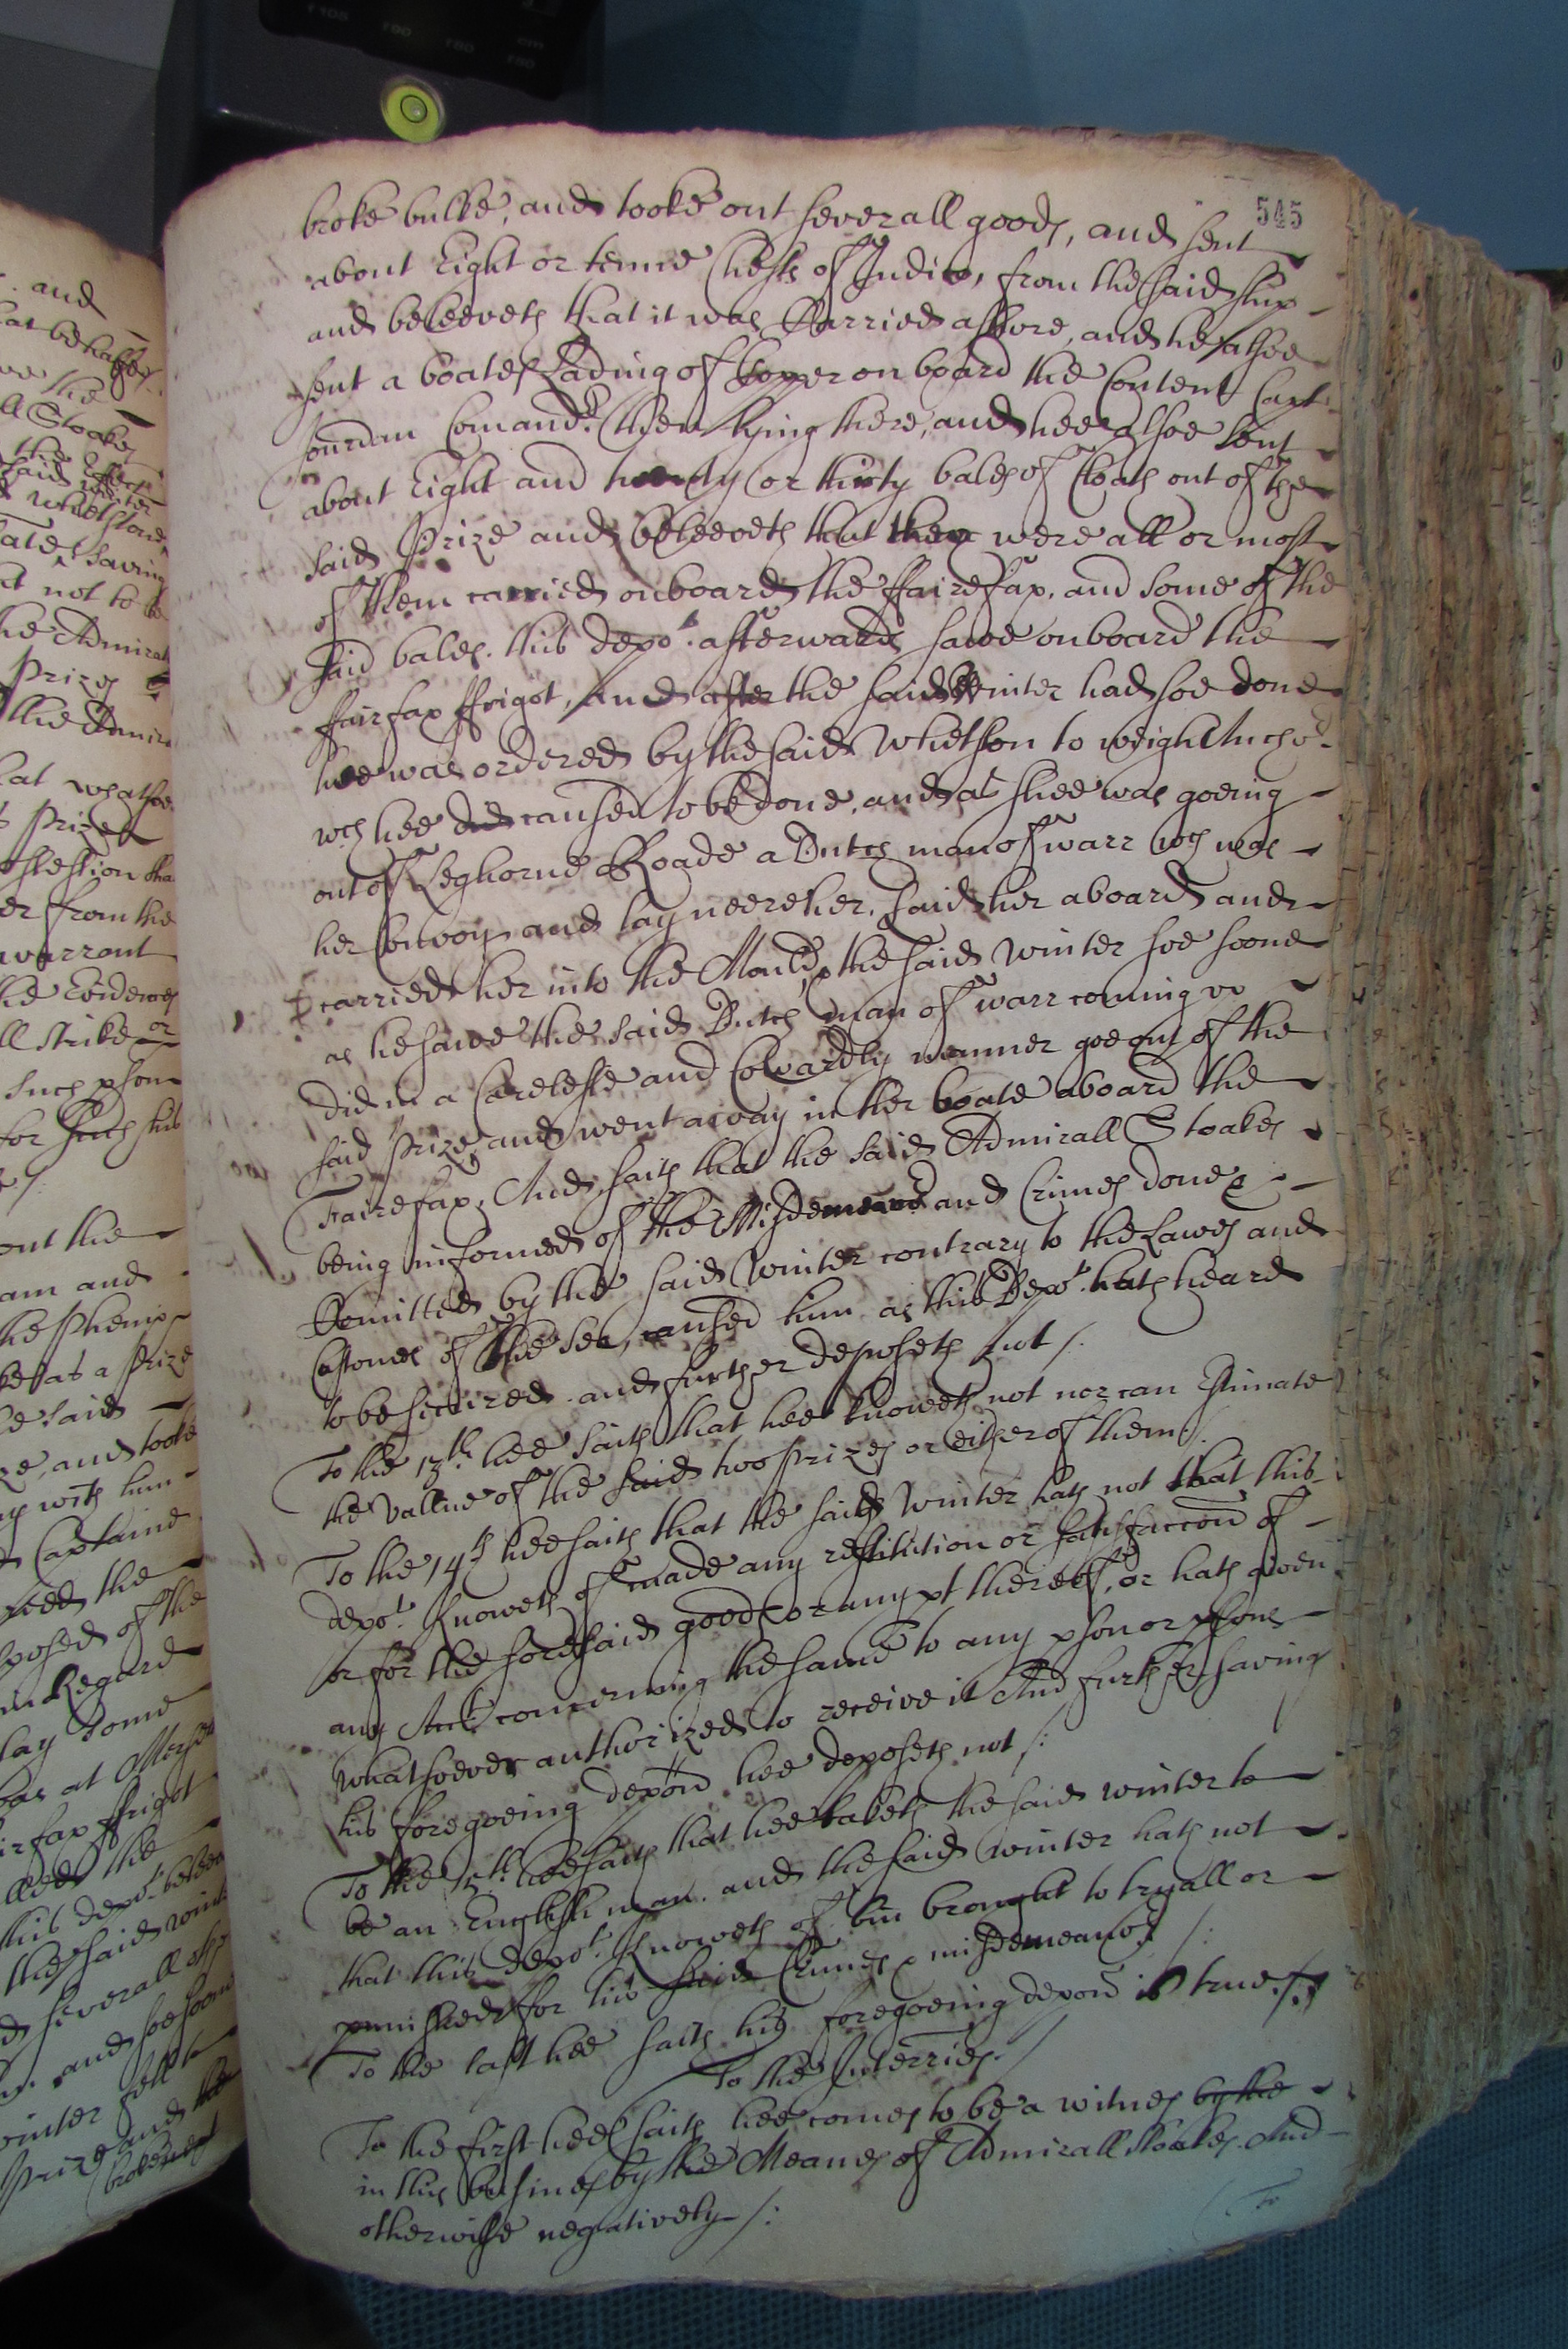 545
broke bulke, and tooke out severall goods, and sent
about Eight or tenne Chests of Indico, from the said ship
and beleeveth that it was Carried ashore, and he alsoe
sent a boates Lading of Copper on board the Content Capt
Jourdan Comandr. then lying there, and hee alsoe sent
about Eight and twenty or thirty bales of Cloath out of the
said Prize and beleeveth that they were all or most
of them carried onboard the ffairefax, and some of the
said bales this depot. afterwards sawe onboard the
ffairfax ffrigot, And after the said Winter had soe done
hee was ordered by the said Whetston to weigh Anchor.
wch hee did caused to be done, and as shee was goeing
out of Leghorne Roade a Dutch man of warr wch was
her Convoy and lay neere her, laid her aboard and
carried her into the Mould, the said Winter soe soone
as he sawe the said Dutch man of warr coming vp
did in a Carelesse and Cowardly manner goe out of the
said Prize, and went away in the boate aboard the
Fairefax, And saith that the said Admirall Stoakes
being informed of the Misdemeanors and Crimes done &
Comitted by the said Winter contrary to the Lawes and
Customes of the Sea, caused him as this Depot. hath heard
to be secured. and further deposeth not /.
To the 13th. hee saith that hee knoweth not nor can Estimate
the vallue of the said two Prizes or either of them /.
To the 14th hee saith that the said Winter hath not that this
depot. knoweth of made any restitution or satisfaccon of
or for the foresaid goods or any pt thereof, or hath given
any Acct concerning the same to any pson or psons
whatsoever authorized to receive it And further saving
his foregoeing depon hee deposeth not /:
To the 15th. hee saith that hee taketh the said winter to
be an English man. and the said winter hath not
that this depot. knoweth of bin brought to tryall or
punished for his said Crimes & misdemeanors /:
To the last hee saith his foregoeing depon is true /:
To the Interries.
To the first hee saith hee comes to be a witnes by the
in this busines by the Meanes of Admirall Stoakes. And
otherwise negatively /:
To